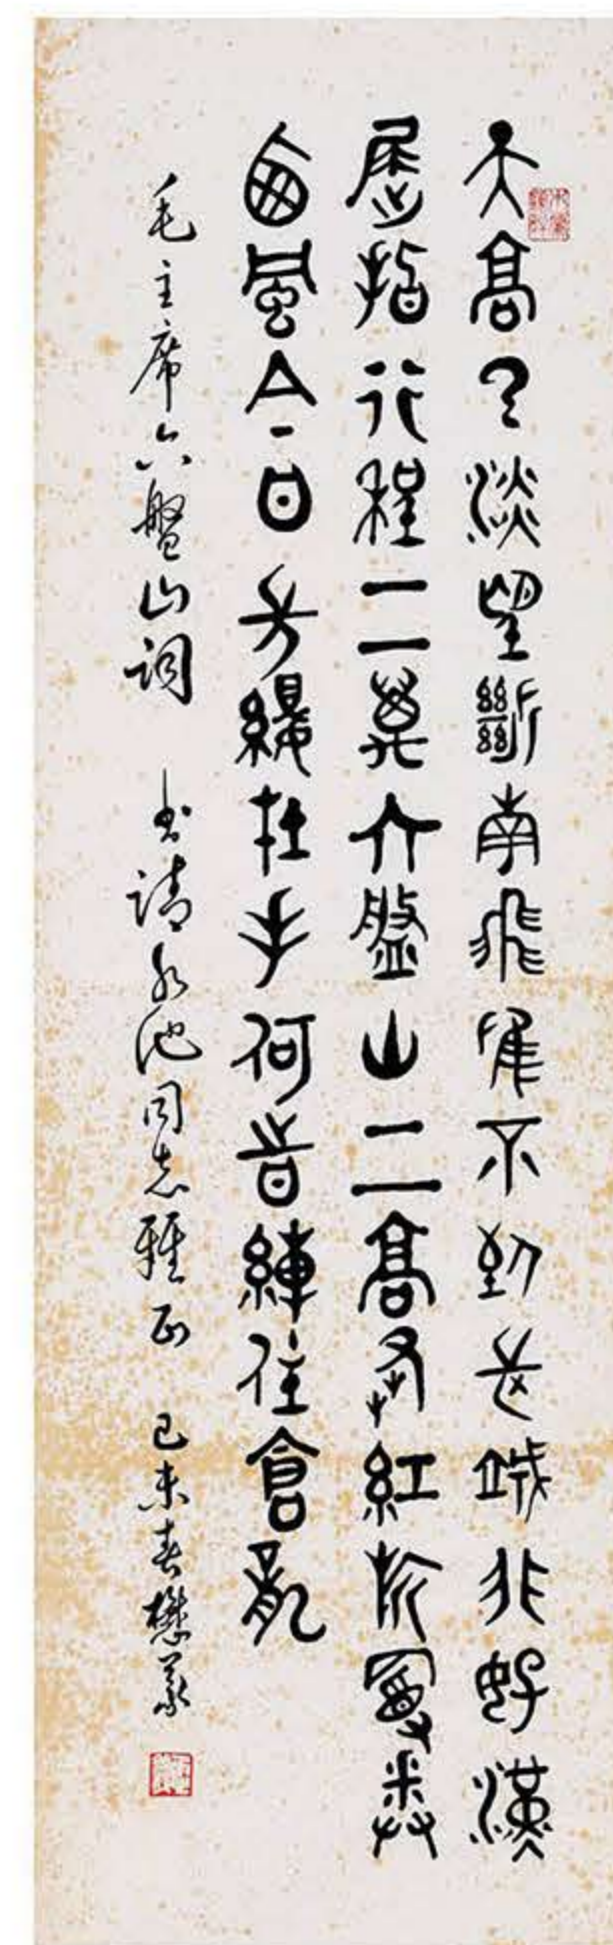 天高云淡望斷南飛雁不到長城非好漢
屈指行程二萬六盤山上高峰紅旂曼卷
西風今日長纓在手何旹縛住倉龍
毛主席六盤山詞 書請永池同志雅正 己未春懋